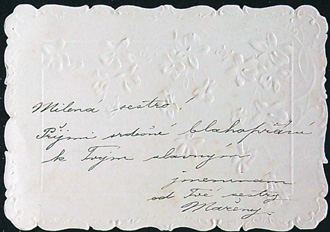 Milená sestro!
Přijmi srdečné blahopřání
k Tvým slavným
jmeninám
od Tvé sestry
Mařeny.